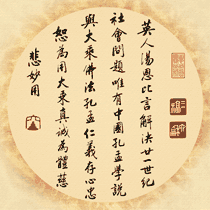 英人湯恩比言解決廿一世紀
社會問題唯有中國孔孟學說
與大乘佛法孔孟仁義存心忠
恕為用大乘真誠為體慈
悲妙用